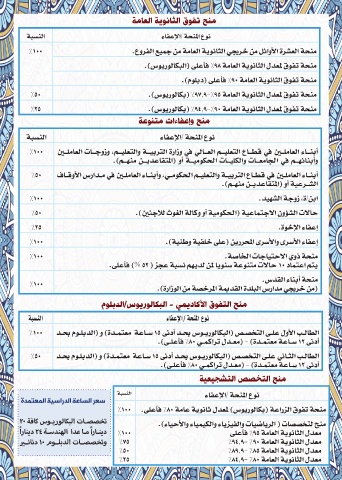 منح تفوق الثانوية العامة
نوع المنحة /الإعفاء النسبة
منحة العشرة الأوائل من خريجي الثانوية العامة من جميع الفروع. ١٠٠٪
منحة تفوق لمعدل الثانوية العامة ٩٨٪ فأعلى (البكالوريوس).
منحة تفوق لمعدل الثانوية العامة ٩٠٪ فأعلى (دبلوم).
منحة تفوق لمعدل الثانوية العامة ٩٥٪-٩٧,٩٪ (بكالوريوس). ٥٠٪
منحة تفوق لمعدل الثانوية العامة ٩٠٪-٩٤,٩٪ (بكالوريوس). ٢٥٪
منح وإعفاءات متنوعة
نوع المنحة /الإعفاء النسبة
أبناء العاملين في قطاع التعليم العالي في وزارة التربية والتعليم، وزوجات العاملين ١٠٠٪
وأبنائهم في الجامعات والكليات الحكومية أو (المتقاعدين منهم).
أبناء العاملين في قطاع التربية والتعليم الحكومي، وأبناء العاملين في مدارس الأوقاف ٥٠٪
الشرعية أو (المتقاعدين منهم).
ابن/ة، زوجة الشهيد. ١٠٠٪
حالات الشؤون الاجتماعية (الحكومية أو وكالة الغوث للاجئين). ٥٠٪
إعفاء الإخوة. ٢٥٪
إعفاء الأسرى والأسرى المحررين (على خلفية وطنية). ١٠٠٪
منحة ذوي الاحتياجات الخاصة. ١٠٠٪
يتم اعتماد ١٠ حالات متنوعة سنويا لمن لديهم نسبة عجز (٥٢ %) فأعلى.
منحة أبناء القدس. ١٠٠٪
(من خريجي مدارس البلدة القديمة المرخصة من الوزارة).
منح التفوق الأكاديمي - البكالوريوس/الدبلوم
نوع المنحة /الإعفاء النسبة
الطالب الأول على التخصص (البكالوريوس بحد أدنى ١٥ ساعة معتمدة) و (الدبلوم بحد ١٠٠٪
أدنى ١٢ ساعة معتمدة) - (معدل تراكمي ٨٠٪ فأعلى).
الطالب الثاني على التخصص (البكالوريوس بحد أدنى ١٥ ساعة معتمدة) و (الدبلوم بحد ٥٠٪
أدنى ١٢ ساعة معتمدة) - (معدل تراكمي ٨٠٪ فأعلى).
منح التخصص التشجيعية
نوع المنحة /الإعفاء النسبة
منحة تفوق الزراعة (بكالوريوس) لمعدل ثانوية عامة ٨٠٪ فأعلى. ١٠٠٪
منح لتخصصات ( الرياضيات والفيزياء والكيمياء والأحياء).
معدل الثانوية العامة ٩٥٪ فأعلى ١٠٠٪
معدل الثانوية العامة ٩٠٪-٩٤,٩٪ ٧٥٪
معدل الثانوية العامة ٨٥٪-٨٩,٩٪ ٥٠٪
معدل الثانوية العامة ٨٠٪-٨٤,٩٪ ٢٥٪
سعر الساعة الدراسية المعتمدة
تخصصات البكالوريوس كافة ٢٠
ديناراً ما عدا الهندسة ٢٤ ديناراً
وتخصصات الدبلوم ١٠ دنانير